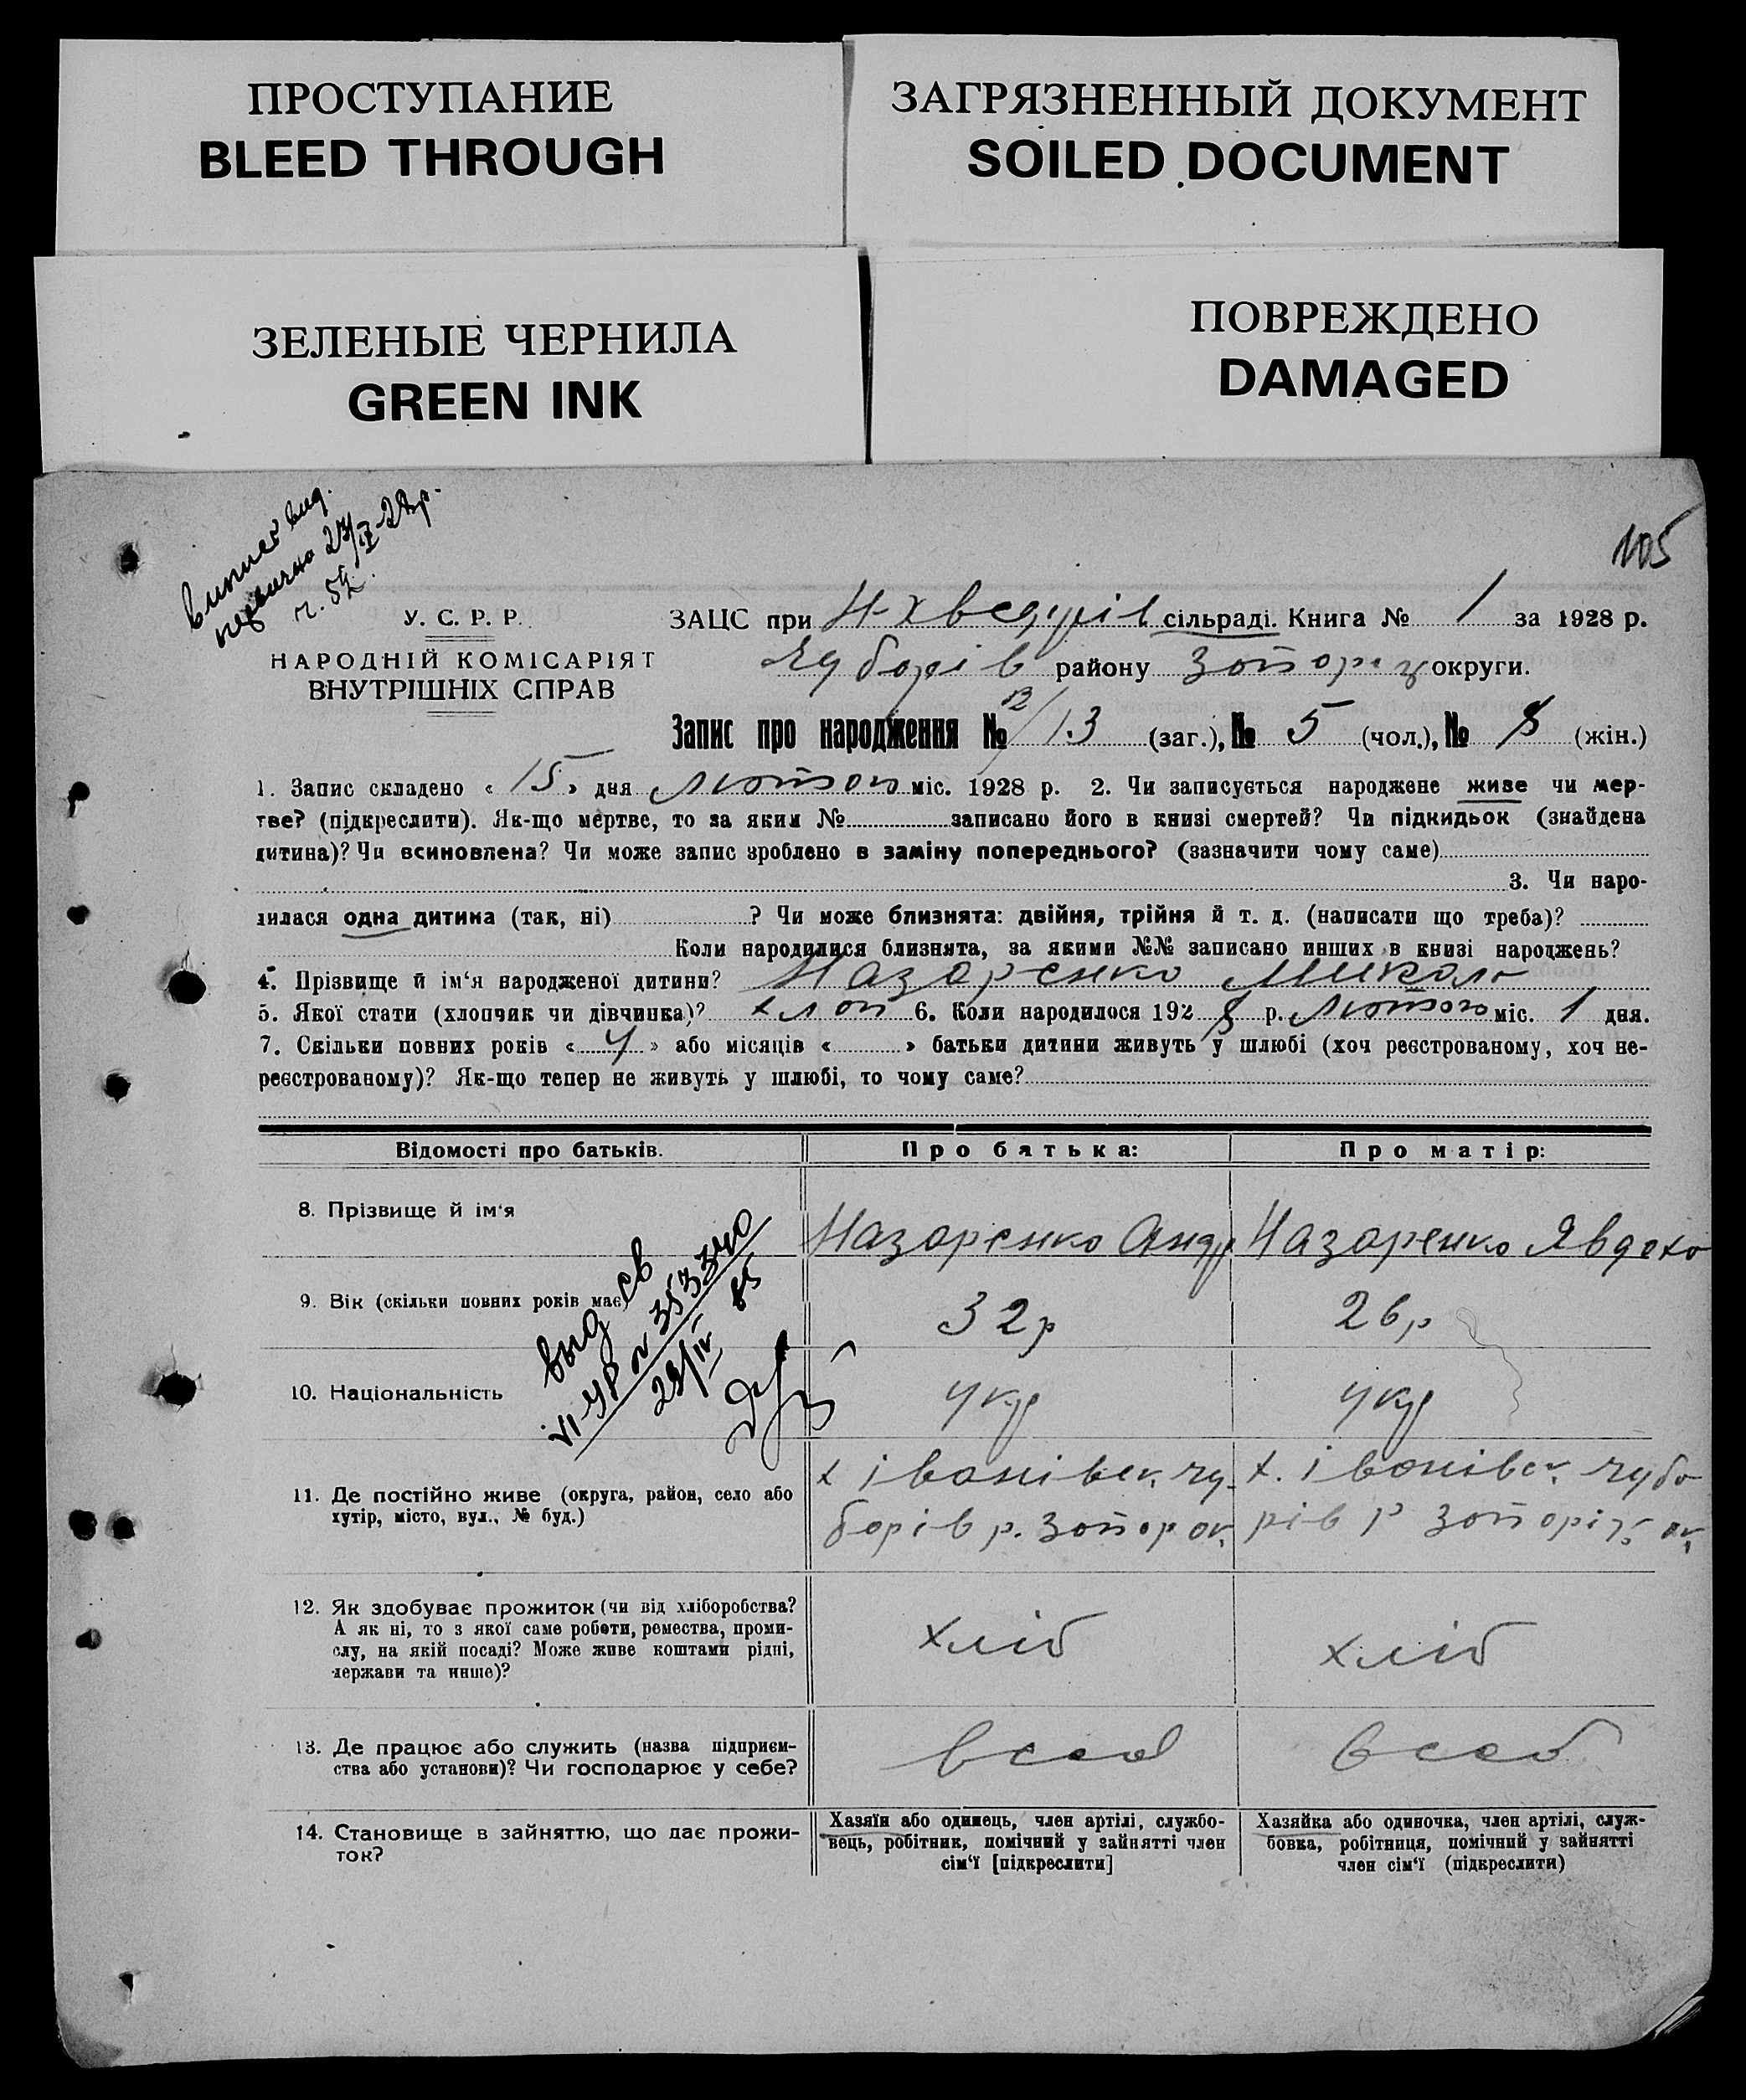 ПРОСТУПАНИЕ
BLEED THROUGH
ЗАГРЯЗНЕННЫЙ ДОКУМЕНТ
SOILED DOCUMENT
ЗЕЛЕНЫЕ ЧЕРНИЛА
GREEN INK
ПОВРЕЖДЕНО
DAMAGED
105
У. С. Р. Р.
НАРОДНІЙ КОМІСАРІЯТ
ВНУТРІШНІХ СПРАВ
ЗАЦС при Н-хведурів сільраді. Книга № 1 за 1928 р.
Чубарів району Запоріз округи.
Запис про народження № 12/13 (заг.), № 5 (чол.), № 8 (жін.)
1. Запис складено « 15 » дня лютого міс. 1928 р. 2. Чи записується народжене живе чи мер-
тве? (підкреслити). Як-що мертве, то за яким № записано його в книзі смертей? Чи підкидьок (знайдена
дитина)? Чи всиновлена? Чи може запис зроблено в заміну попереднього? (зазначити чому саме)
3. Чи наро-
дилася одна дитина (так, ні) ? Чи може близнята: двійня, трійня й т. д. (написати що треба)?
Коли народилися близнята, за якими №№ записано инших в книзі народжень?
4. Прізвище й ім‘я народженої дитини? Назаренко Микола
5. Якої стати (хлопчик чи дівчинка)? хлоп 6. Коли народилося 1928 р. лютого міс. 1 дня.
7. Скільки повних років « 4 » або місяців « » батьки дитини живуть у шлюбі (хоч реєстрованому, хоч не-
реєстрованому)? Як-що тепер не живуть у шлюбі, то чому саме?
Відомості про батьків. Про батька: Про матір:
8. Прізвище й ім‘я Назаренко Андр Назаренко Явдоха
9. Вік (скільки повних років має) 32р 26р
10. Національність укр укр
11. Де постійно живе (округа, район, село або
хутір, місто, вул., № буд.)
х Іванівск. Чу-
барів р. Запор ок.
х. Іванівск. Чуба
рів р Запоріз. ок.
12. Як здобуває прожиток (чи від хліборобства?
А як ні, то з якої саме роботи, ремества, проми-
слу, на якій посаді? Може живе коштами рідні,
держави та инше)?
хліб хліб
13. Де працює або служить (назва підприєм-
ства або установи)? Чи господарює у себе?
всеб всеб
14. Становище в зайняттю, що дає прожи-
ток?
Хазяїн або одинець, член артілі, службо-
вець, робітник, помічний у зайнятті член
сім‘ї [підкреслити]
Хазяйка або одиночка, член артілі, служ-
бовка, робітниця, помічний у зайнятті
член сім‘ї (підкреслити)
выд св
VI-УР № 353340
29/IV 85